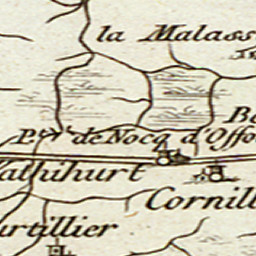 la Malass
Be
Pt de Nocq d'Offo
Vathihurt
Cornill
urtillier